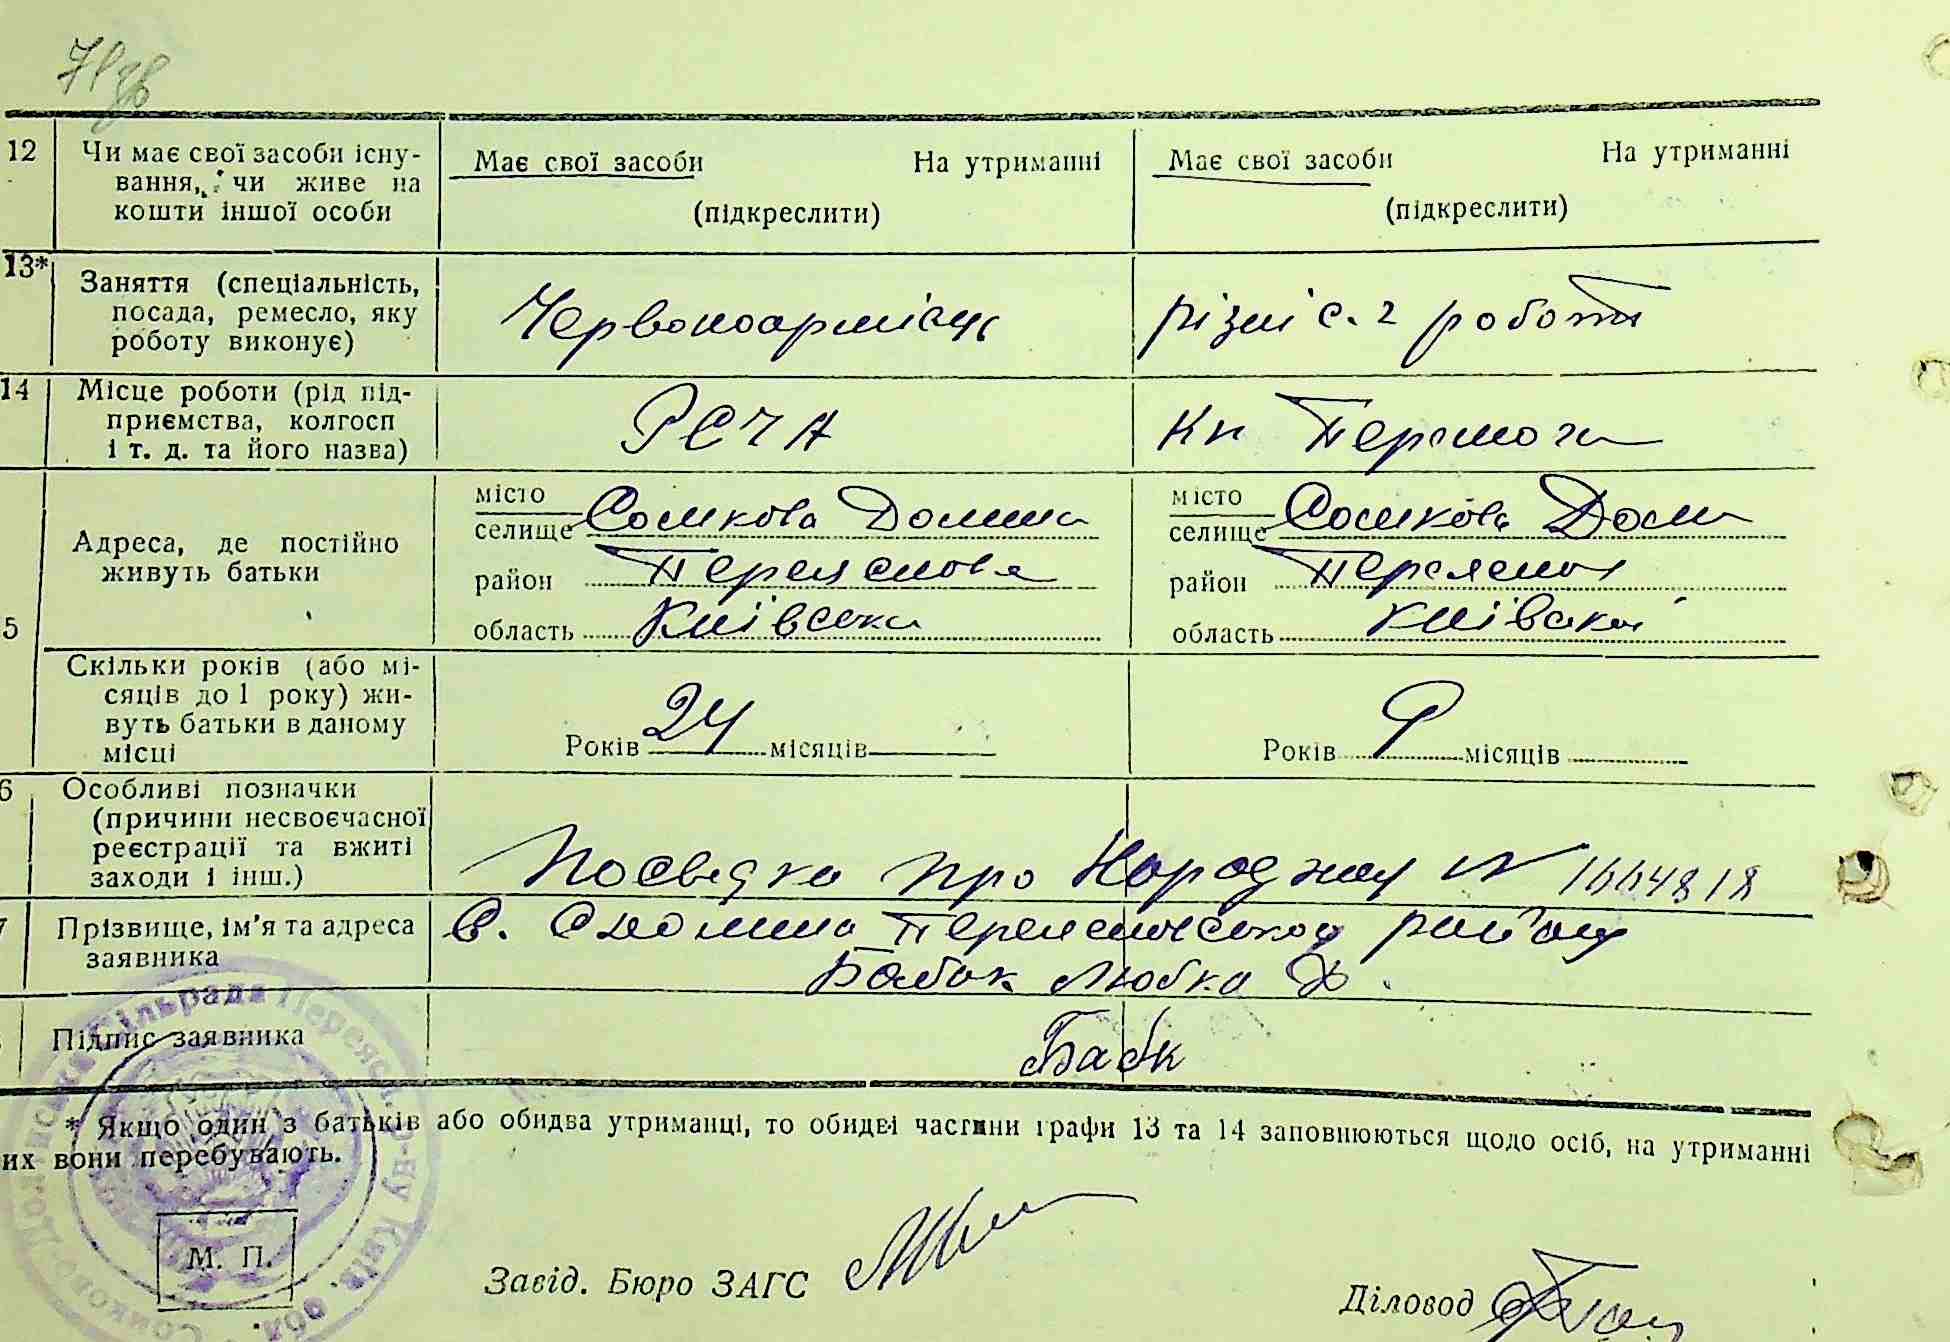 12 Чи має свої засоби існу-
вання, чи живе на
кошти іншої особи
Має свої засоби На утриманні
(підкреслити)
Має свої засоби На утриманні
(підкреслити)
13* Заняття (спеціальність,
посада, ремесло, яку
роботу виконує)
Червоноармієць
різні с. г роботи
14 Місце роботи (рід під-
приємства, колгосп
і т. д. та його назва)
РСЧА
Кп Перемога
5
Адреса, де постійно
живуть батьки
місто
селище Сомкова Долина
район Переяслов
область Київська
місто
селище Сомкова Доли
район Переяслов
область Київська
Скільки років (або мі-
сяців до 1 року) жи-
вуть батьки в даному
місці
Років 24 місяців
Років 9 місяців
6 Особливі позначки
(причини несвоєчасної
реєстрації та вжиті
заходи і інш.)
Посвідка про Народжен № 1664818
7 Прізвище, ім'я та адреса
заявника
С. Сдолина Переяславського району
Бабак Любка
Підпис заявника
Бабк
* Якщо один з батьків або обидва утриманці, то обидві частини графи 13 та 14 заповнюються щодо осіб, на утриманні
их вони перебувають.
М. П.
Завід. Бюро ЗАГС
Діловод